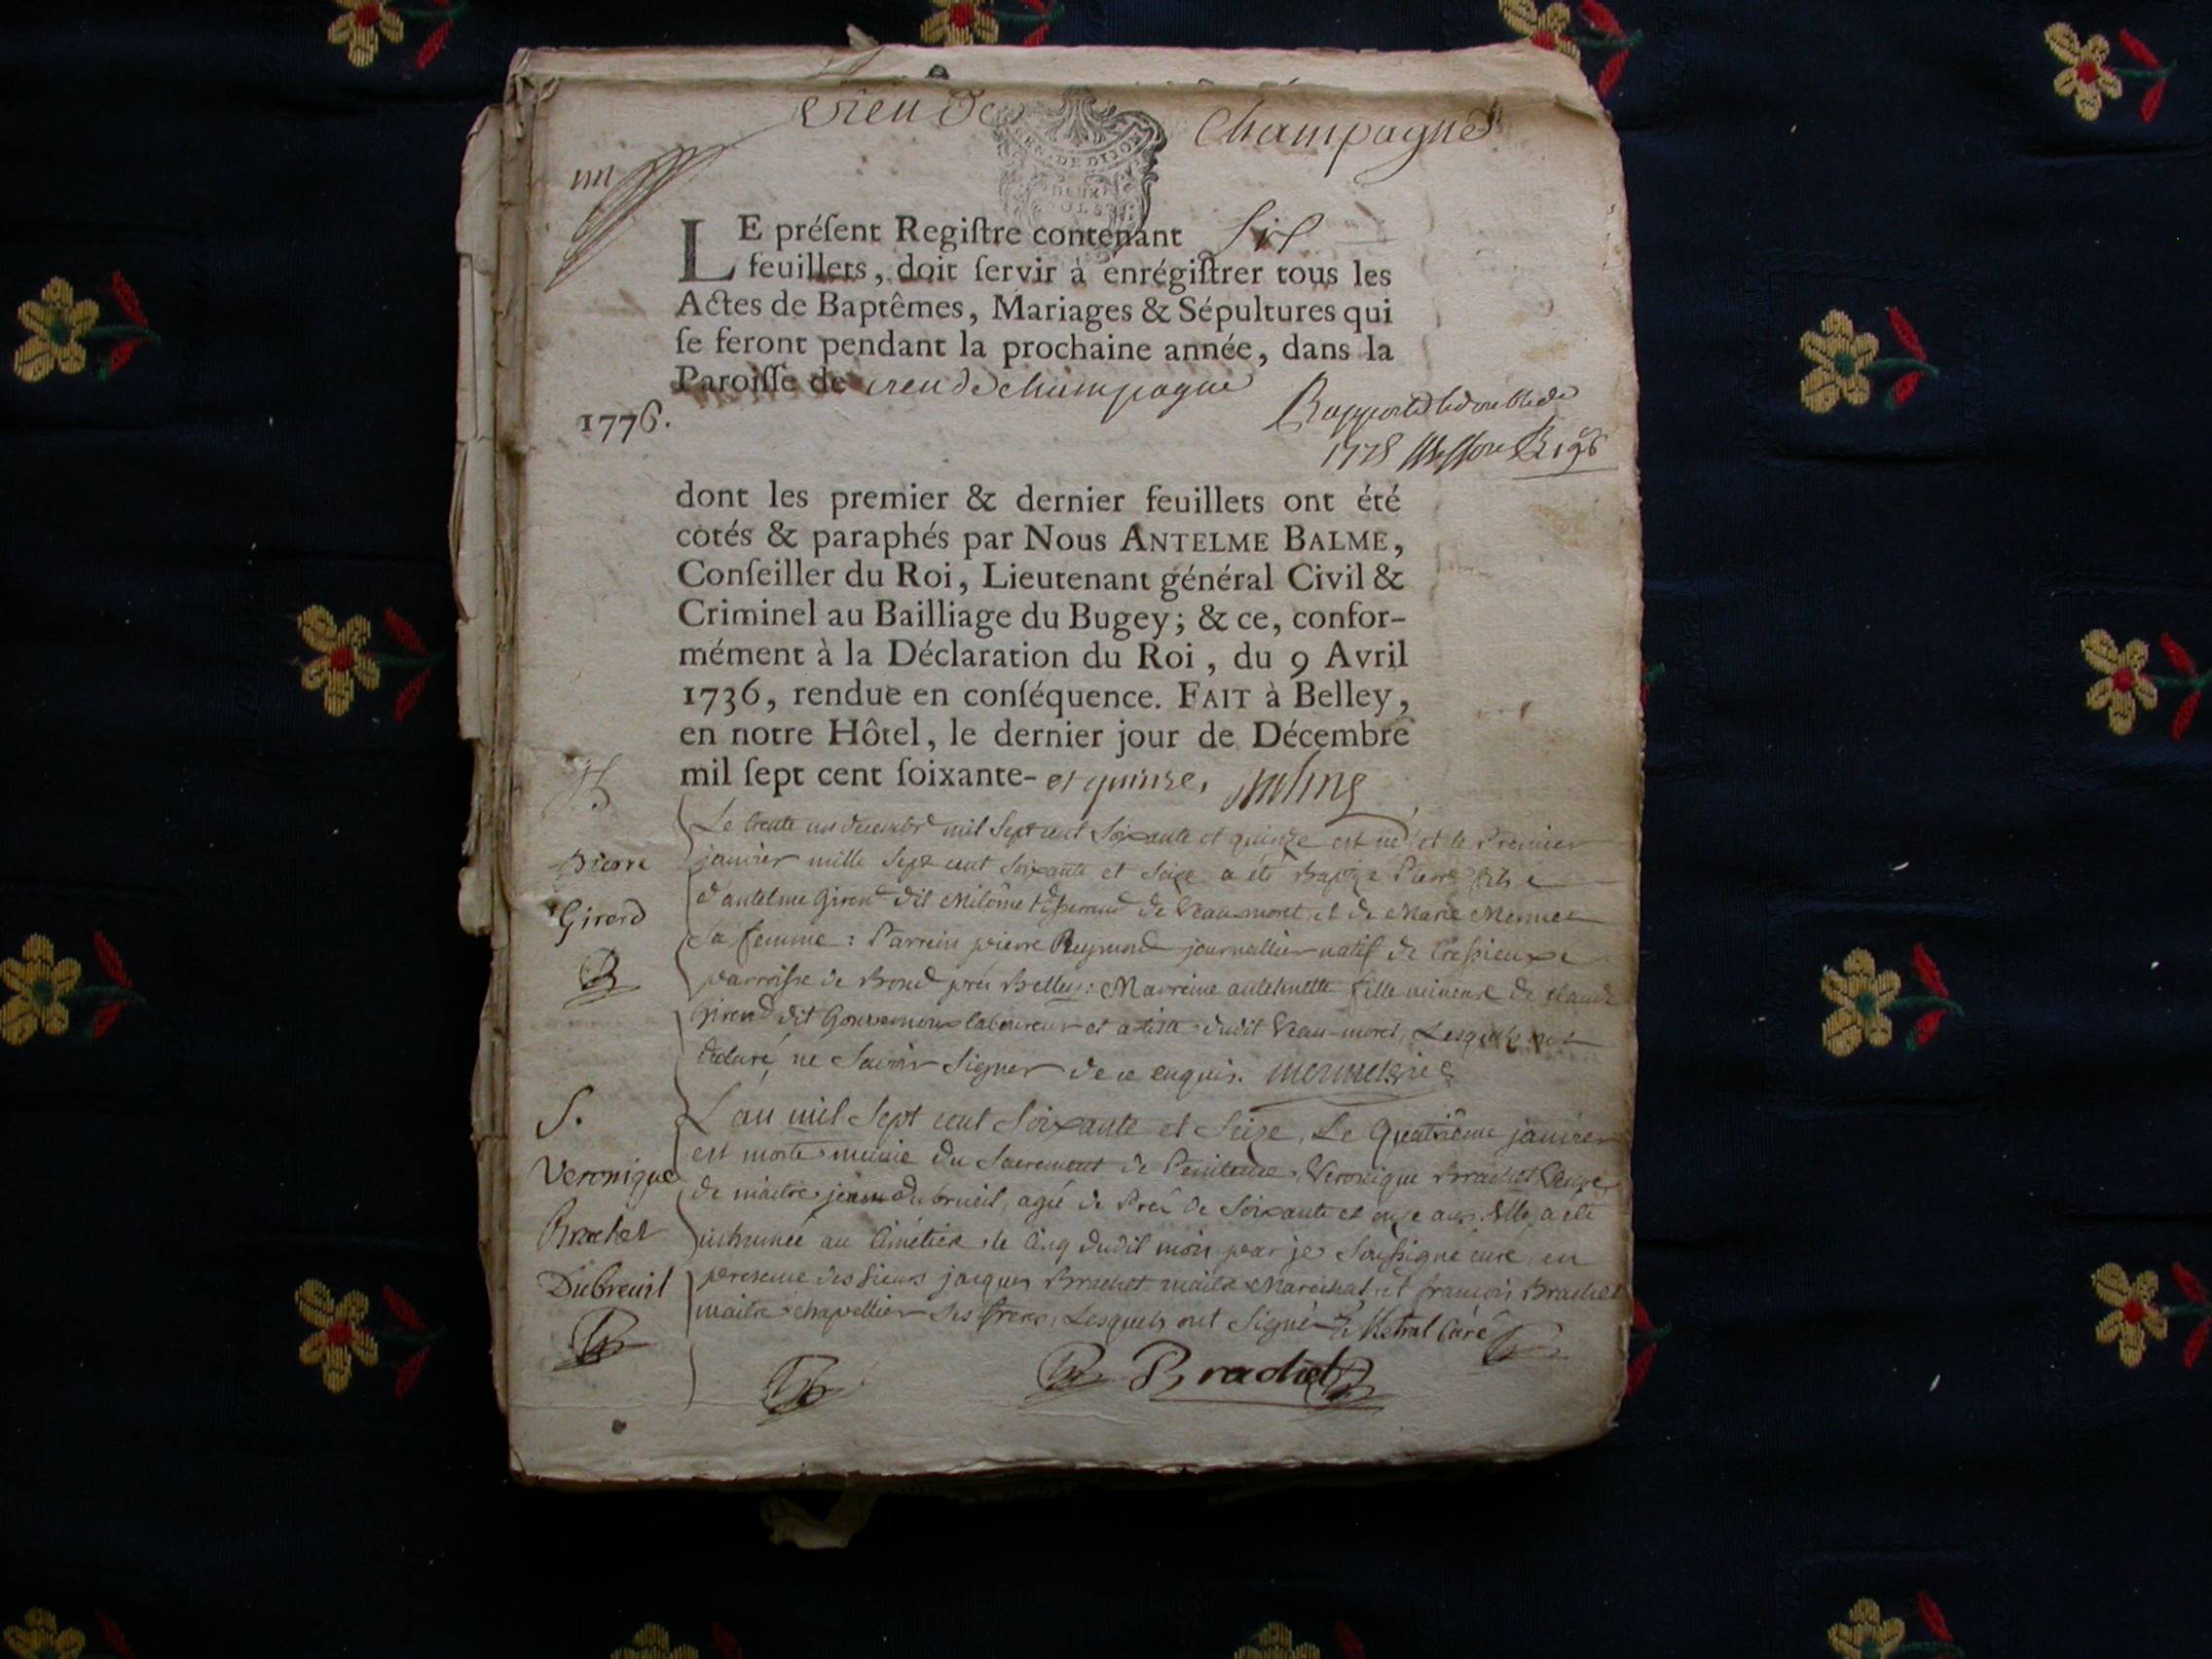 vieu de Champagne
DE DIJON
LE préſent Regiſtre contenant six
feuillets, doit ſervir à enrégiſtrer tous les
Actes de Baptêmes, Mariages & Sépultures qui
ſe feront pendant la prochaine année, dans la
Paroiſſe de vieu de champagne
Rapporté le double de
1776.
dont les premier & dernier feuillets ont été
cotés & paraphés par Nous ANTELME BALME,
Conſeiller du Roi, Lieutenant général Civil &
Criminel au Bailliage du Bugey; & ce, confor-
mément à la Déclaration du Roi, du 9 Avril
1736, rendue en conſéquence. FAIT à Belley,
en notre Hôtel, le dernier jour de Décembre
mil ſept cent ſoixante- et quinze,
B
Pierre
Girard
Le trente un decembre mil Sept cent Soixante et quinze est né et le Premier
janvier mille Sept cent Soixante et Seize a été Baptizé Pierre fils
d'antelme Girard dit de Veaumoret, et de Marie Mermet
Sa femme : Parrein pierre Reymond journallier natif de Cressieux
parroisse de Bond près Belley : Marreine antelmette fille mineure de claude
Girard dit Gouverneur laboureur et dudit Veau-moret, Lesquels ont
declaré ne Savoir Signer de ce enquis.
S.
Veronique
Brachet
Dubreuil
L'an mil Sept cent Soixante et Seize, Le Quatriême janvier
est morte munie du Sacrement de Penitence, Veronique Brachet Veuve
de maitre jean dubrueil, agée de Près de Soixante et onze ans. Elle a été
inhumée au Cimétiere le Cinq dudit mois par je Soussigné curé, en
presence des Sieurs jacques Brachet maitre Marechal et françois Brachet
maitre chapellier Ses freres, Lesquels ont Signé Curé
Brachet